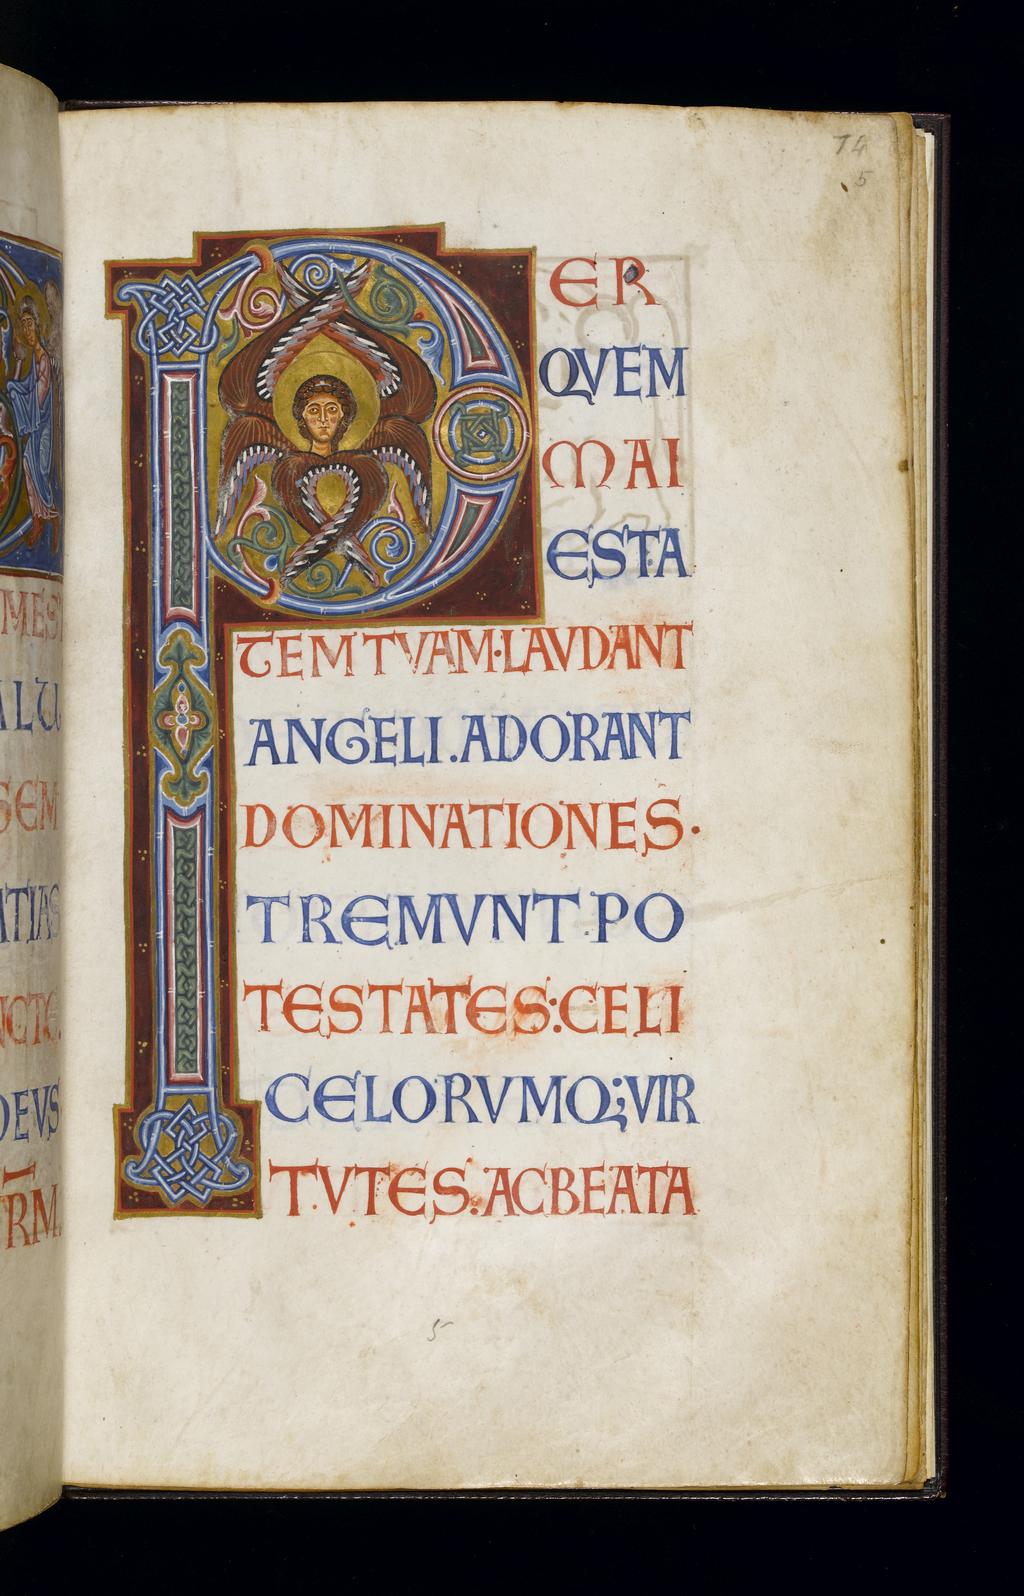 74
5
PER
QVEM
MAI
ESTA
TEMTVAM·LAVDANT
ANGELI.ADORANT
DOMINATIONES·
TREMVNT PO
TESTATES:CELI
CELORVMQ;VIR
TVTES:ACBEATA
5
MES
ALU
SEM
ATIAS
DEVS
RM.